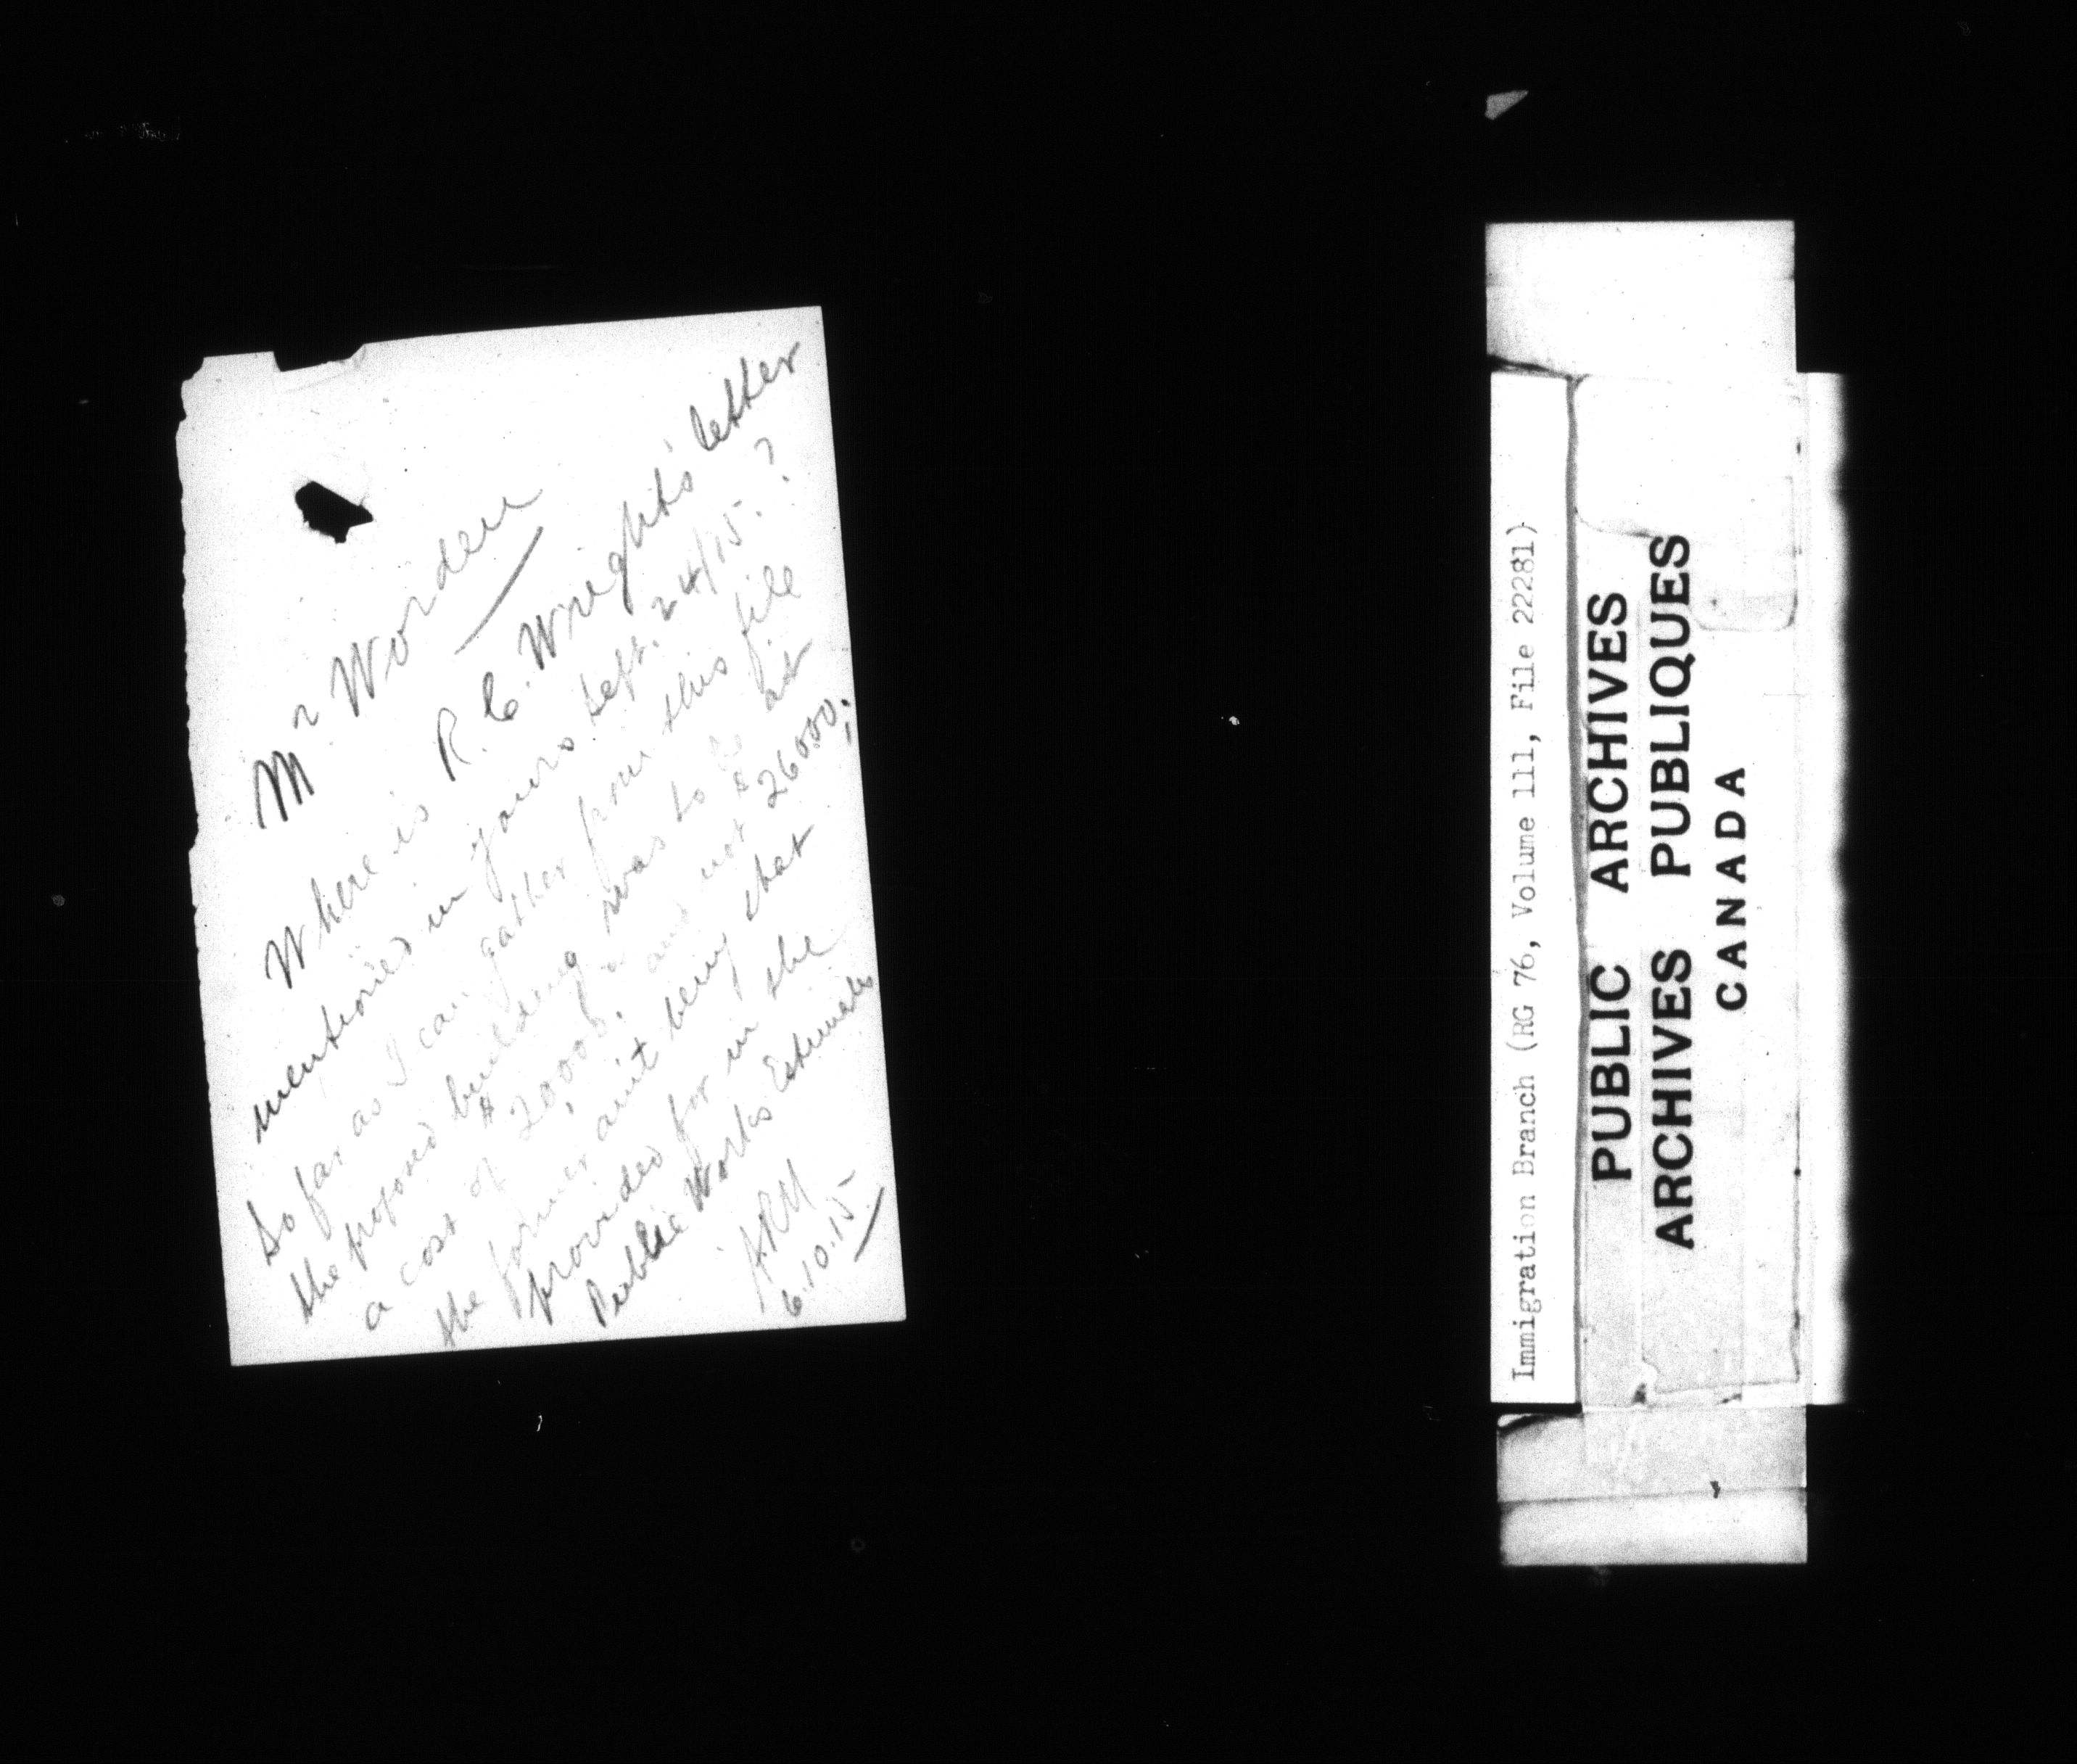 Mr Worden
Where is R. C. Wright's letter
mentioned in yours Sept. 24/15.?
So far as I can gather from this file
the proposed building was to be at
a cost of $20,000. and not $26000;
the former amt being that
provided for in the
Public Works Estimates
6.10.15
Immigration Branch (RG 76, Volume 111, File 22281)
PUBLIC ARCHIVES
ARCHIVES PUBLIQUES
CANADA